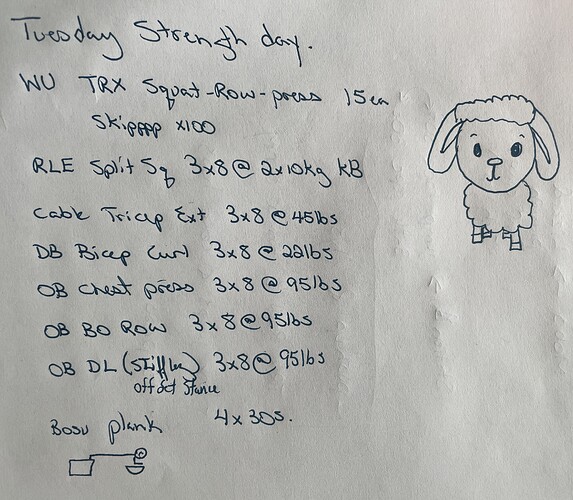 Tuesday Strength day.
WU TRX Squat-Row-press 15ea
Skipppp x100
RLE Split Sq 3x8 @ 2x10kg KB
Cable Tricep Ext 3x8 @ 45lbs
DB Bicep Curl 3x8 @ 22lbs
OB Chest press 3x8 @ 95lbs
OB BO Row 3x8 @ 95lbs
OB DL (Stiff) 3x8 @ 95lbs
offset Stance
Bosu plank 4x30s.